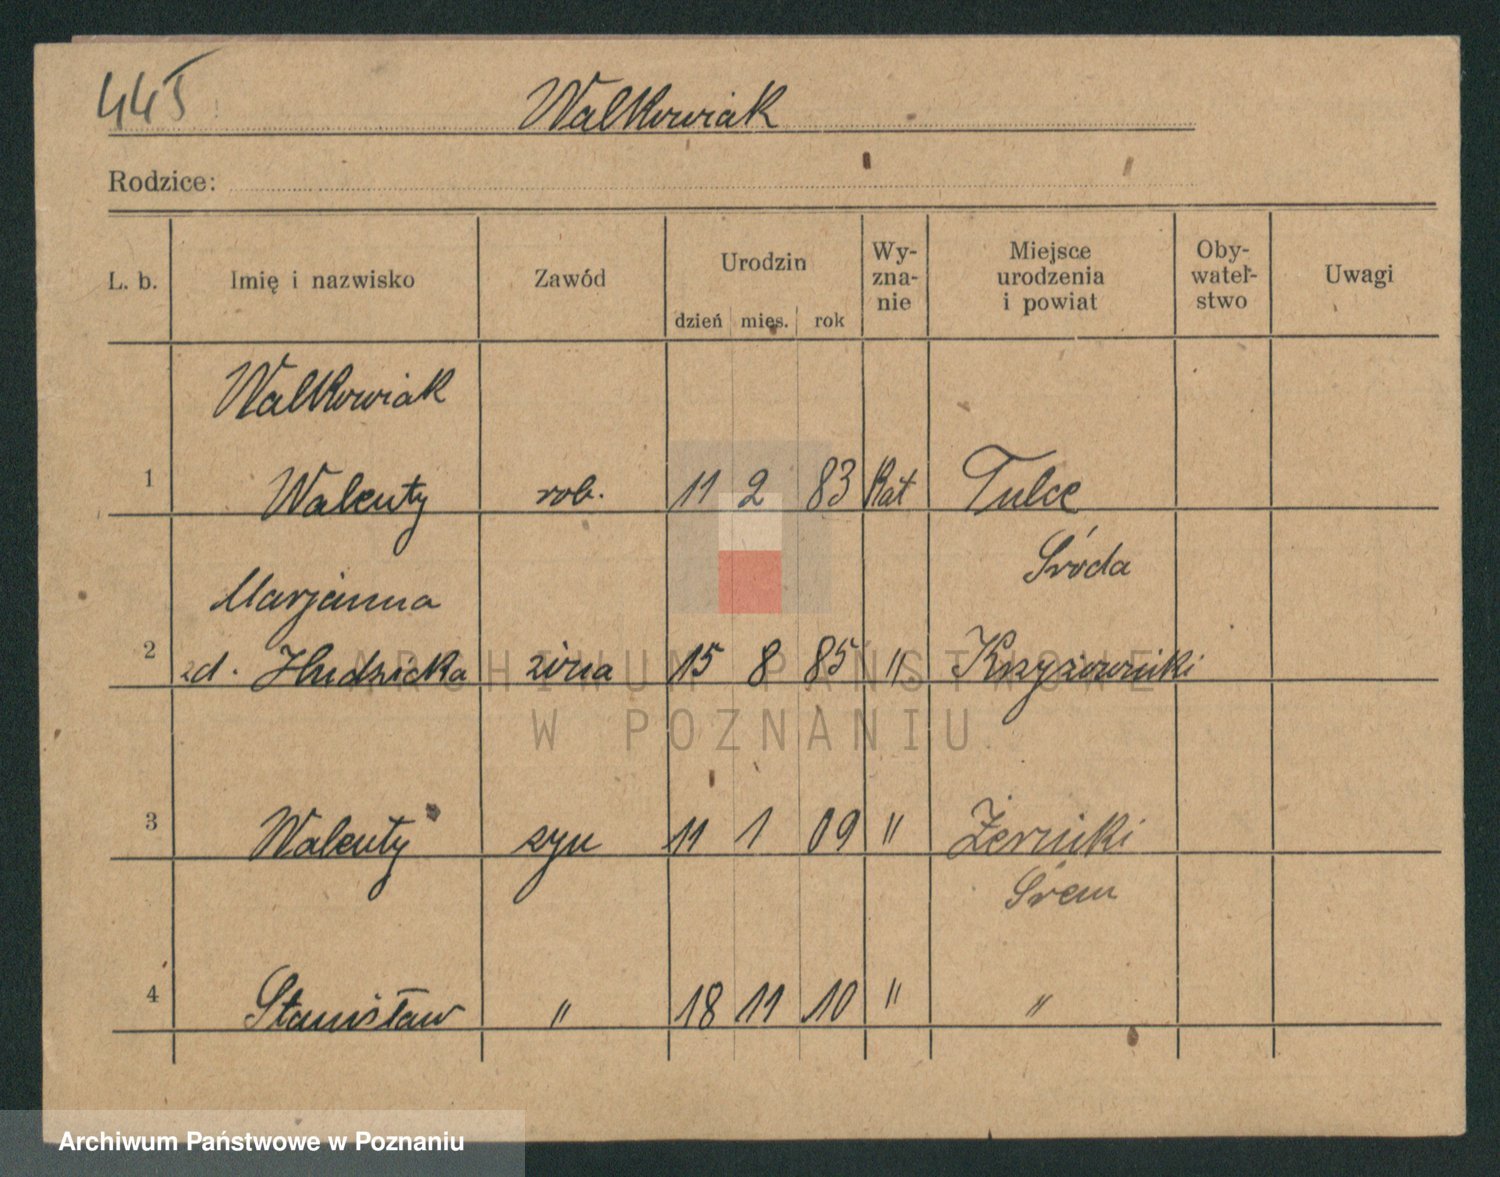 445
Walkowiak
Rodzice:
L. b. Imię i nazwisko Zawód Urodzin dzień mies. rok Wy-zna-nie Miejsce urodzenia i powiat Oby-watel-stwo Uwagi
Walkowiak
1 Walenty rob. 11 2 83 Kat Tulce
Środa
Marjanna
2 zd. Hudzicka żona 15 8 85 " Krzyżowniki
3 Walenty syn 11 1 09 " Żerniki
Śrem
4 Stanisław " 18 11 10 " "
ARCHIWUM PAŃSTWOWE
W POZNANIU
Archiwum Państwowe w Poznaniu